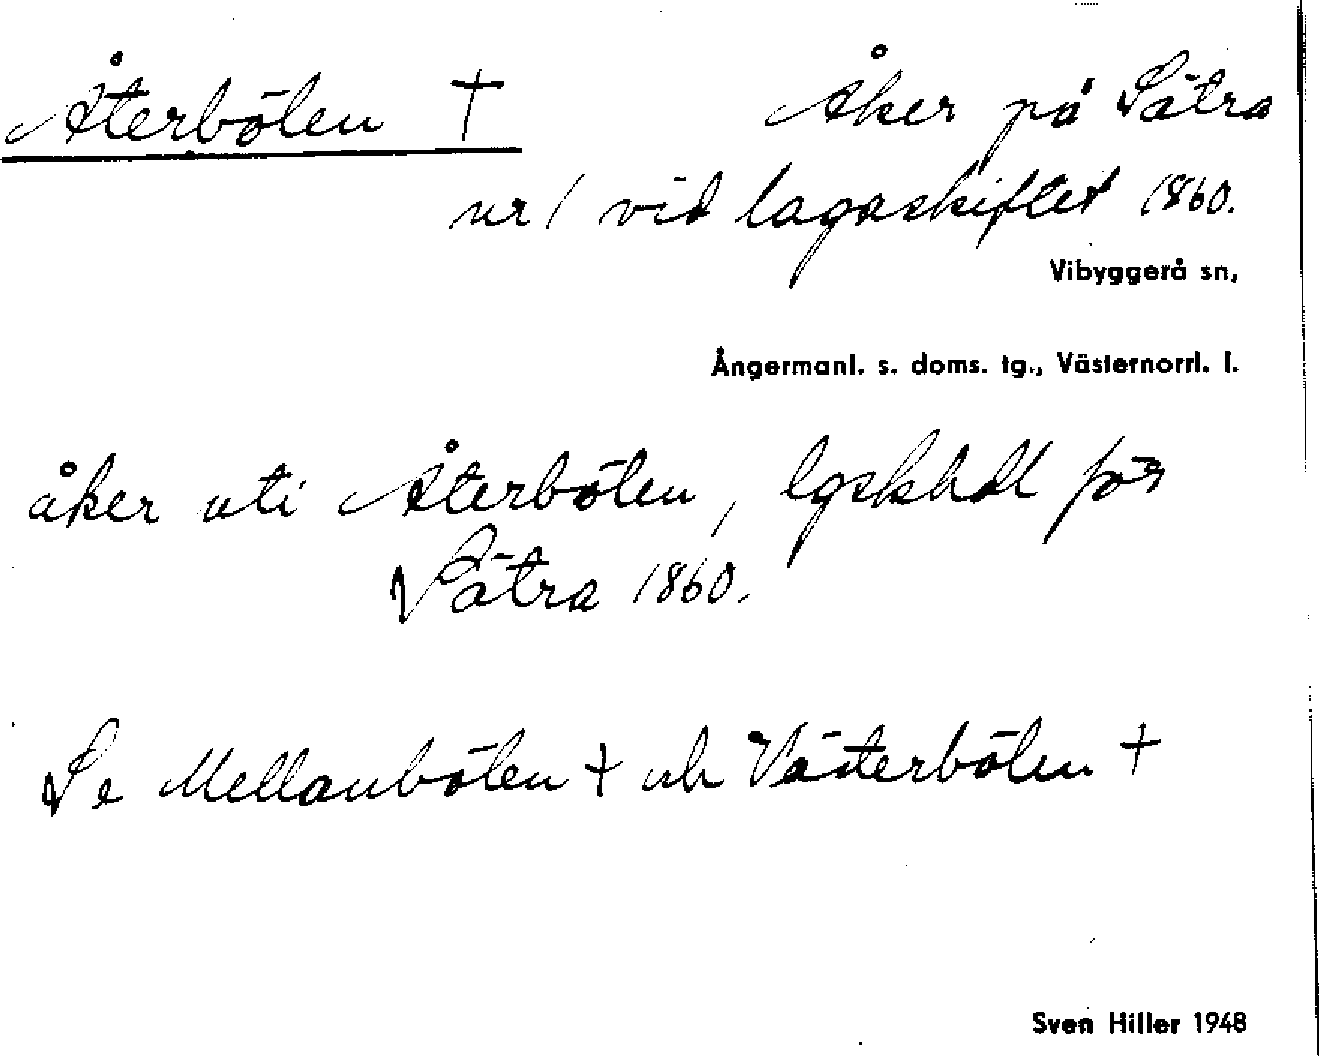 Återbölen †
Åker på Sätra
nr 1 vid lagaskiftet 1860.
Vibyggerå sn,
Ångermanl. s. doms. tg., Västernorrl. l.
åker uti Återbölen, lgskhdl för
Sätra 1860.
Se Mellanbölen † och Västerbölen †
Sven Hiller 1948